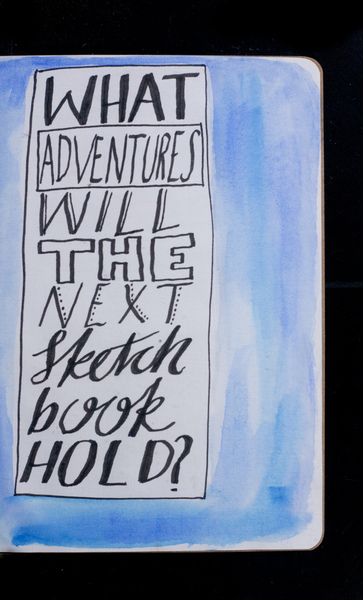 WHAT
ADVENTURES
WILL
THE
NEXT
sketch
book
HOLD?